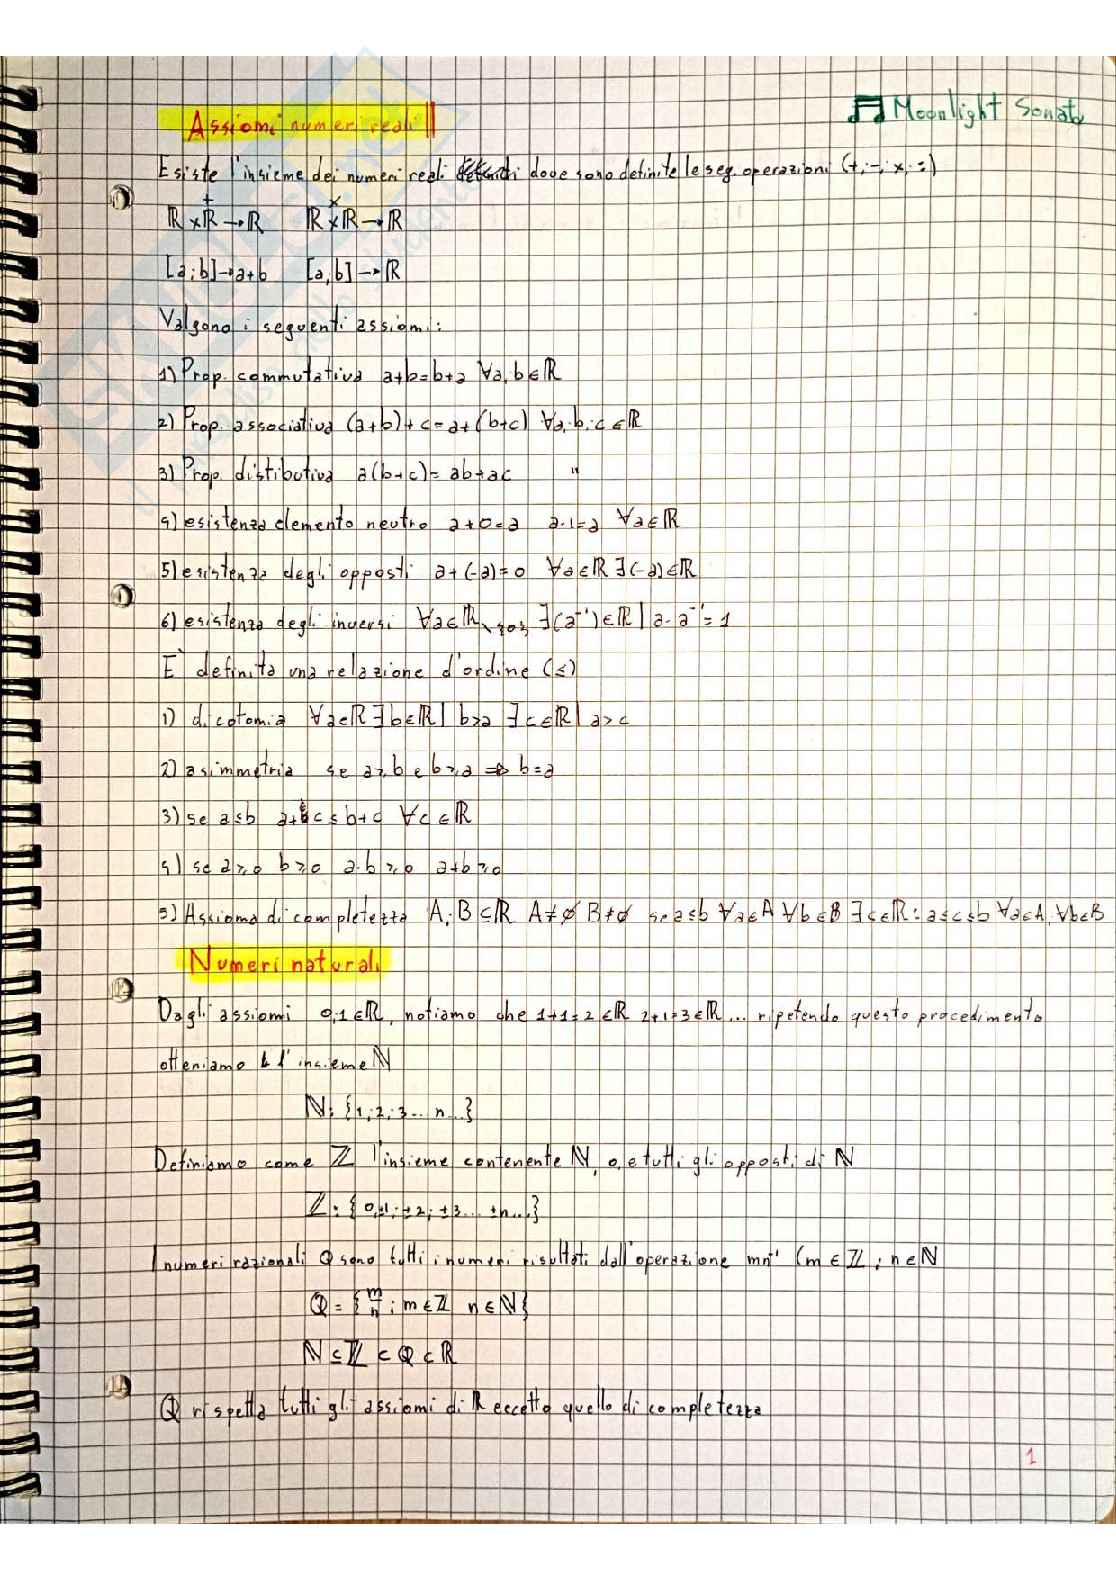 Assiomi numeri reali
♫ Moonlight Sonata
Esiste l'insieme dei numeri reali dove sono definite le seg. operazioni (+; -; x; :)
ℝ×ℝ→ℝ ℝ×ℝ→ℝ
+ ×
[a;b]→a+b [a,b]→ℝ
Valgono i seguenti assiomi:
1) Prop. commutativa a+b=b+a ∀a,b∈ℝ
2) Prop. associativa (a+b)+c=a+(b+c) ∀a,b;c∈ℝ
3) Prop distibutiva a(b+c)=ab+ac "
4) esistenza elemento neutro a+0=a a·1=a ∀a∈ℝ
5) esistenza degli opposti a+(-a)=0 ∀a∈ℝ ∃(-a)∈ℝ
6) esistenza degli inversi ∀a∈ℝ\{0} ∃(a⁻¹)∈ℝ | a·a⁻¹=1
E' definita una relazione d'ordine (≤)
1) dicotomia ∀a∈ℝ ∃b∈ℝ | b>a ∃c∈ℝ | a>c
2) asimmetria se a≥b e b≥a ⇒ b=a
3) se a≤b a+c≤b+c ∀c∈ℝ
4) se a≥0 b≥0 a·b≥0 a+b≥0
5) Assioma di completezza A;B⊆ℝ A≠∅ B≠∅ se a≤b ∀a∈A ∀b∈B ∃c∈ℝ: a≤c≤b ∀a∈A, ∀b∈B
Numeri naturali
Dagli assiomi 0,1∈ℝ, notiamo che 1+1=2∈ℝ 2+1=3∈ℝ... ripetendo questo procedimento
otteniamo l'insieme ℕ
ℕ: {1;2;3... n...}
Definiamo come ℤ l'insieme contenente ℕ, 0, e tutti gli opposti di ℕ
ℤ: {0,±1;±2;±3... ±n...}
I numeri razionali ℚ sono tutti i numeri risultati dall'operazione mn⁻¹ (m∈ℤ; n∈ℕ
ℚ = {m/n; m∈ℤ n∈ℕ}
ℕ⊆ℤ⊂ℚ⊂ℝ
ℚ rispetta tutti gli assiomi di ℝ eccetto quello di completezza
1